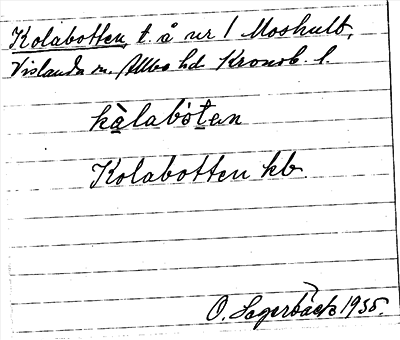 Kolabotten, t. å nr 1 Moshult,
Vislanda sn. Allbo hd Kronob. l.
kålabòtan
Kolabotten kb.
O. Lagerbäck 1935.